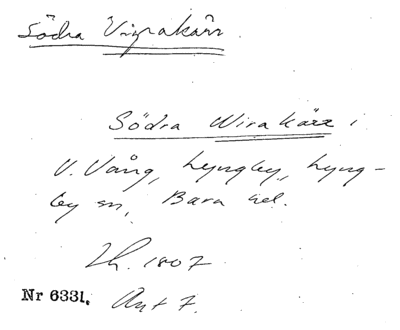 Södra Virakärr.
Södra Wira kärr i
V. Vång, Lyngby, Lyng-
by sn, Bara hd.
Lh. 1807
Nr 6331. Akt 7.